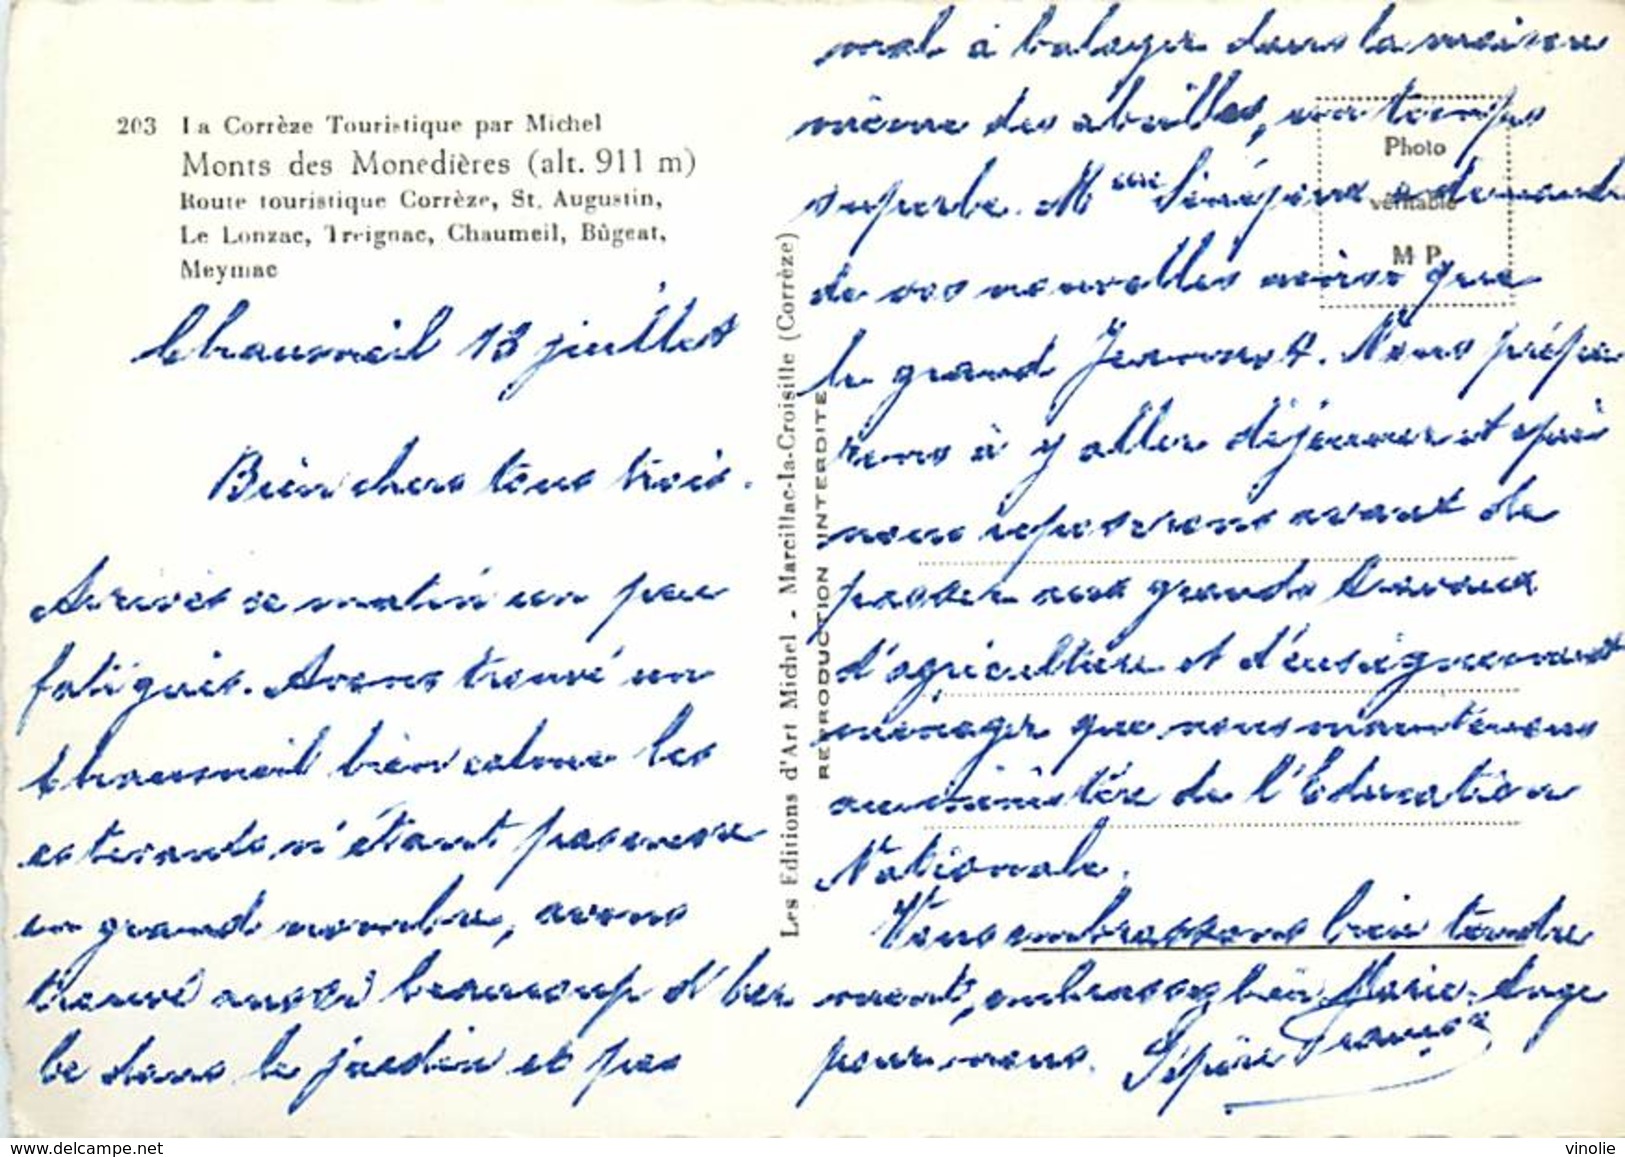 203 La Corrèze Touristique par Michel
Monts des Monedières (alt. 911 m)
Route touristique Corrèze, St. Augustin,
Le Lonzac, Treignac, Chaumeil, Bûgeat,
Meymac
Chaumeil 13 juillet
Bien chers tous trois.
Arrivés ce matin un peu
fatigués. Avons trouvé un
Chaumeil bien calme les
estivants n'étant pas encore
en grand nombre, avons
trouvé aussi beaucoup d'her
be dans le jardin et pas
Les Editions d'Art Michel - Marcillac-la-Croisille (Corrèze)
REPRODUCTION INTERDITE
Photo
véritable
M P
mal à balayer dans la maison
même des abeilles, un temps
superbe. Mme a demandé
de vos nouvelles ainsi que
le grand Jeannot. Nous prépa
rons à y aller déjeuner et puis
nous reposerons avant de
passer aux grands travaux
d'agriculture et d'enseignement
ménager que nous
au ministère de l'Education
Nationale.
Vous embrassons bien tendre
ment, embrassez bien Marie-Ange
pour nous. Pépère
vinolie